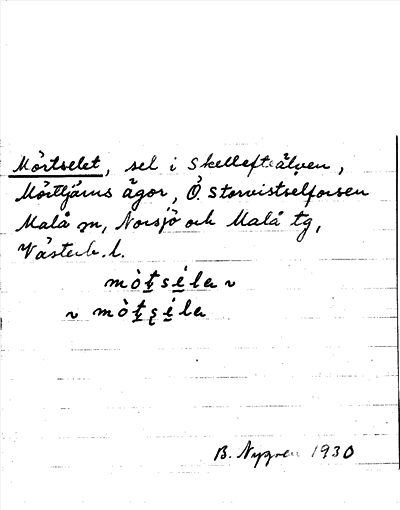 Mörtselet, sel i Skellefteälven,
Mörttjärns ägor, Ö. Storvistselforsen
Malå sn, Norsjö och Malå tg,
Västerb. l.
mò̀ṯsḛ́la ~
~ mò̀ṯsḛ́la
B. Nygren 1930